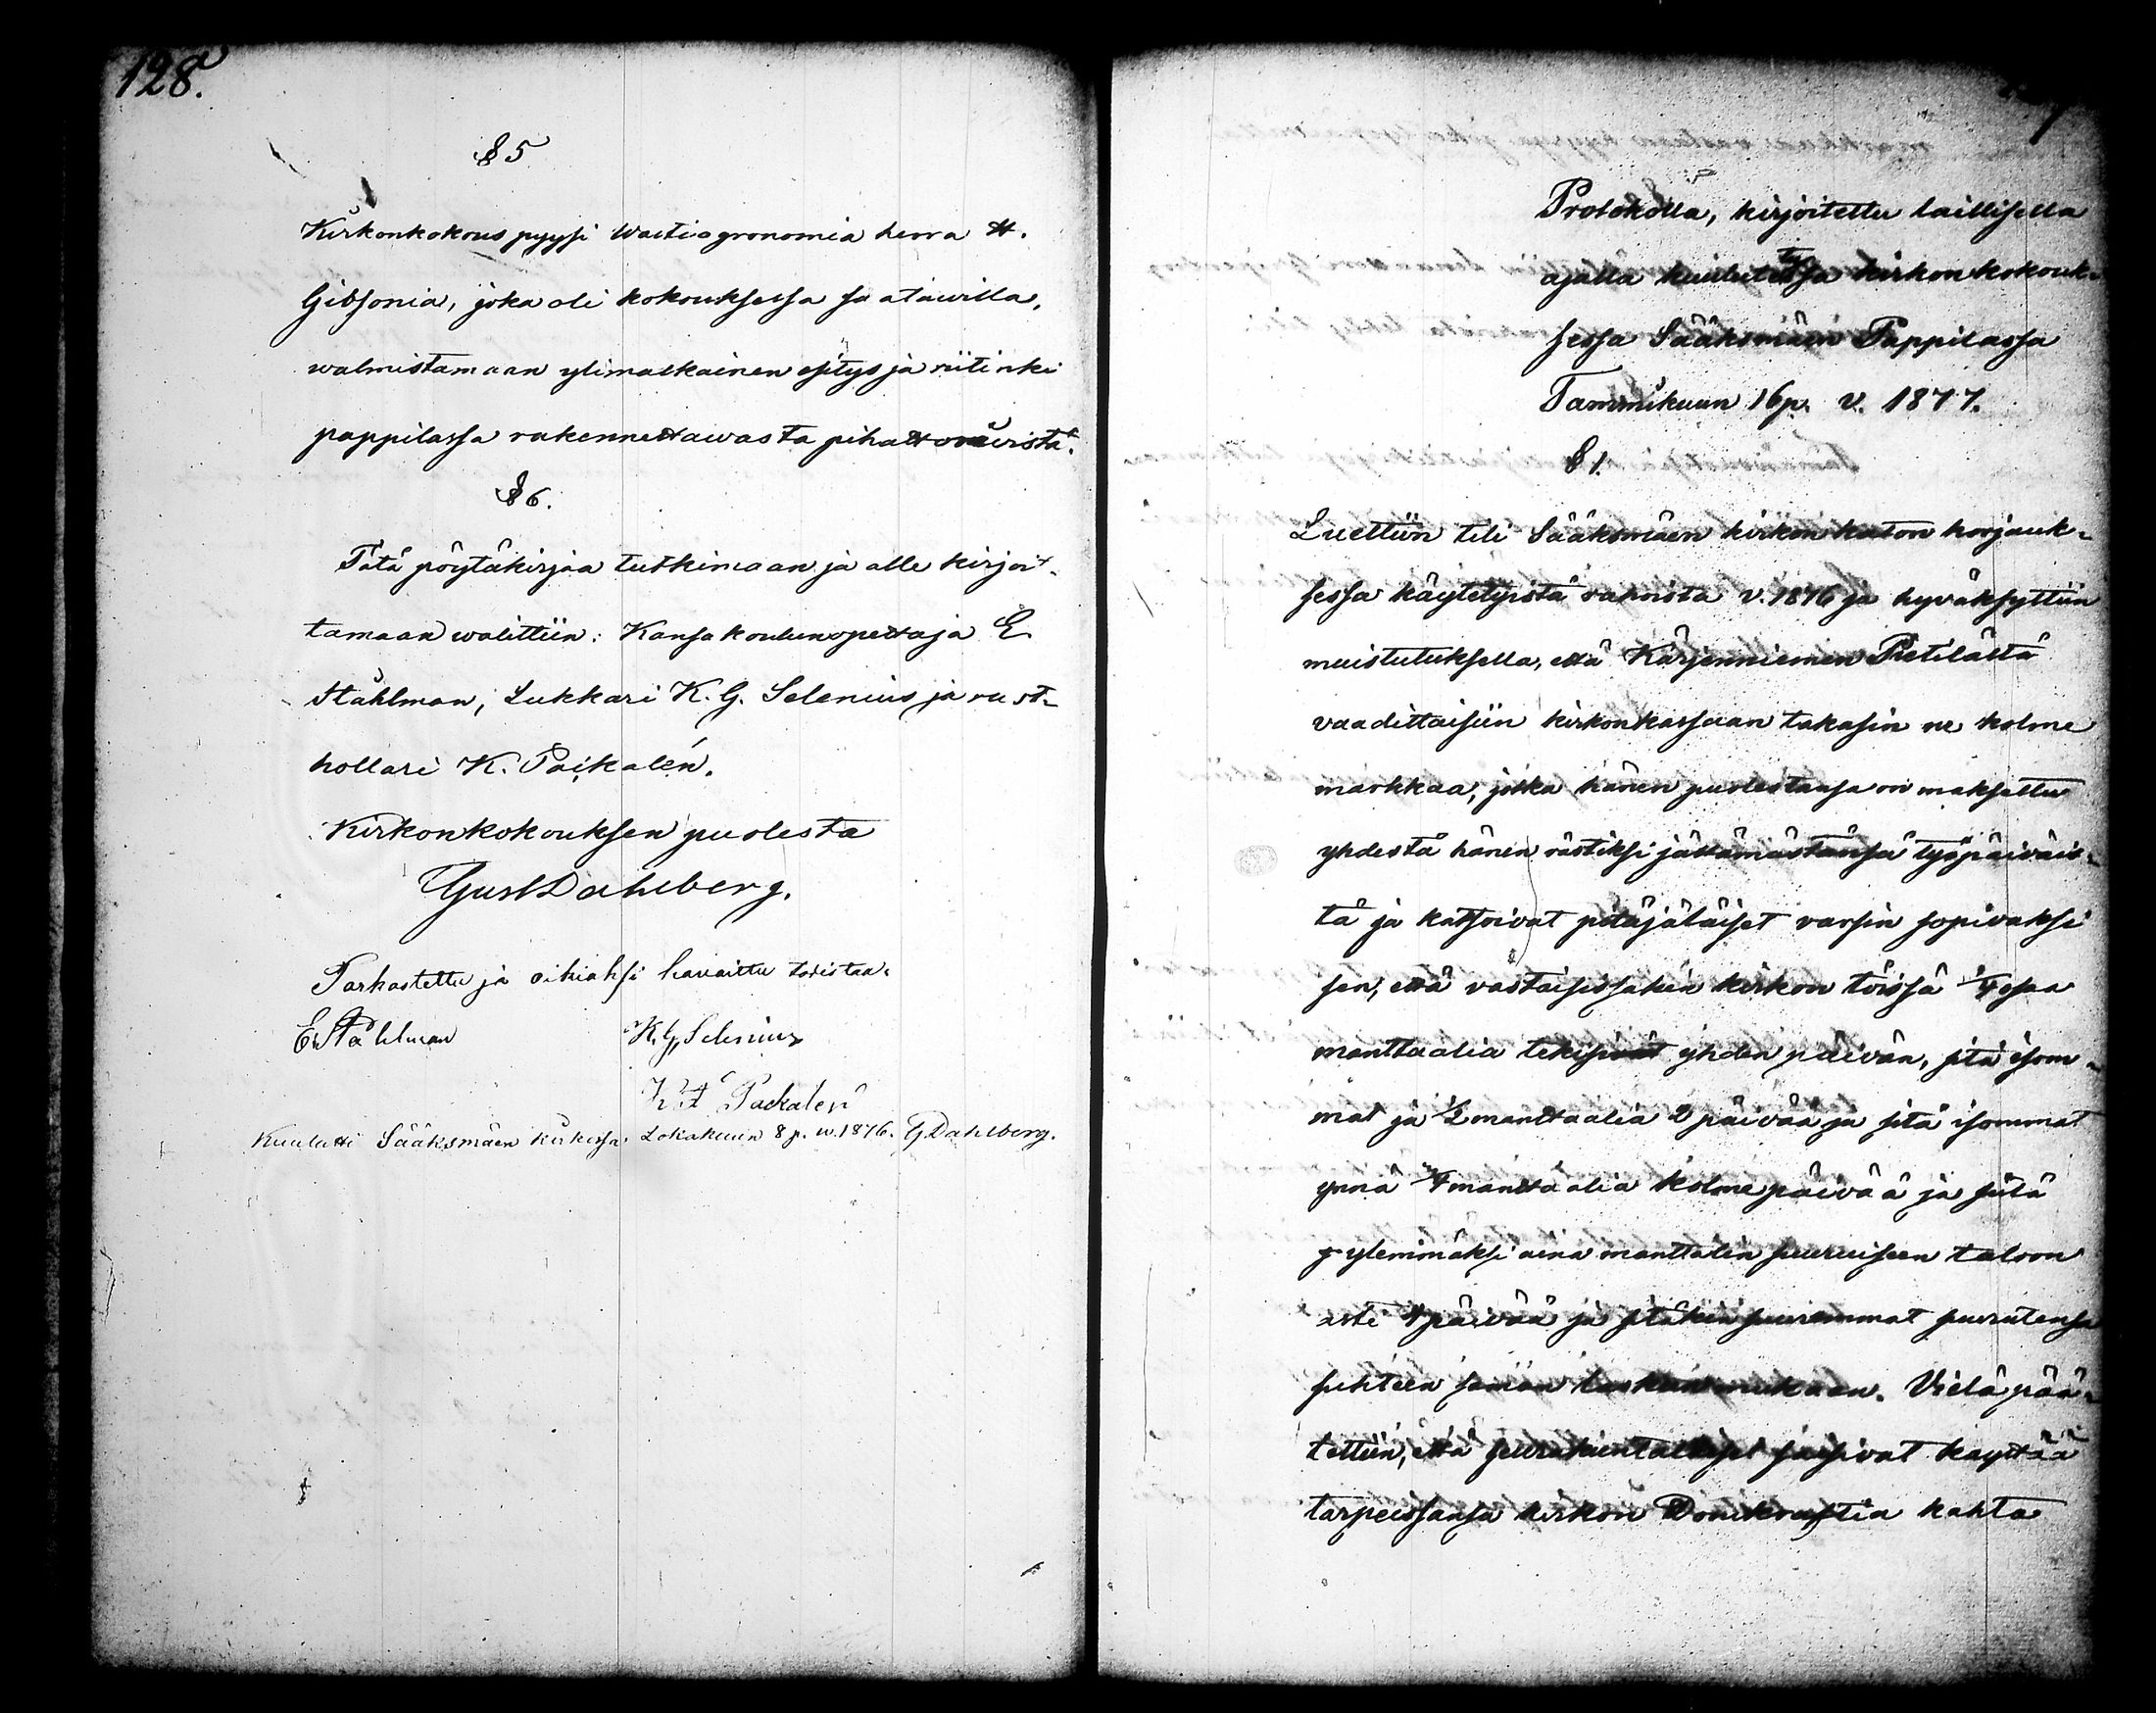 128.
§ 5
Kirkonkokous pyysi Waltioagronomia herra H.
Gibsonia, joka oli kokouksessa sa atawilla,
walmistamaan ylimalkainen esitys ja riitinki
pappilassa rakennettawasta pihatto
§ 6.
Tätä pöytäkirjaa tutkimaan ja alle kirjoit-
tamaan walittiin: Kansakoulunopettaja E.
Ståhlman, Lukkari K. G. Selenius ja rust-
hollari K. Paikalén.
Kirkonkokouksen puolesta
Gust Dahlberg.
Tarkastettu ja oikiaksi havaittu todistaa:
E. Ståhlman K. G. Selenius
K. A. Packalén
Kuulutti Sääksmäen kirkossa Lokakuun 8 p. w. 1876. G Dahlberg.
Protokolla, kirjoitettu laillisella
ajalla kuulutetussa kirkonkokouk-
sessa Sääksmäen Pappilassa
Tammikuun 16 p. v. 1877.
§ 1.
Luettiin tili Sääksmäen kirkon katon korjauk-
sessa käytetyistä rahoista v. 1876 ja hyväksyttiin
muistutuksella, että Kärjenniemen Pietilältä
vaadittaisiin kirkonkassaan takasin ne kolme
markkaa, jotka hänen puolestansa on maksettu
yhdestä hänen rästiksi jättämästänsä työpäiväs-
tä ja katsoivat pitäjäläiset varsin sopivaksi
sen, että vastaisissakin kirkon töissä 1/4 osaa
manttaalia tekisivät yhden päivän, sitä isom-
mat ja 1/2 manttaalia 2 päivää ja sitä isommat
ynnä 3/4 manttaalia kolme päivää ja siitä
ylemmäksi aina manttalin suuruiseen taloon
asti 4 päivää ja sitäkin suuremmat suuruutensa
suhteen saman laskun mukaan. Vielä pää-
tettiin, että seurakuntalaiset saisivat käyttää
tarpeissansa kirkon Domkraftia kahta